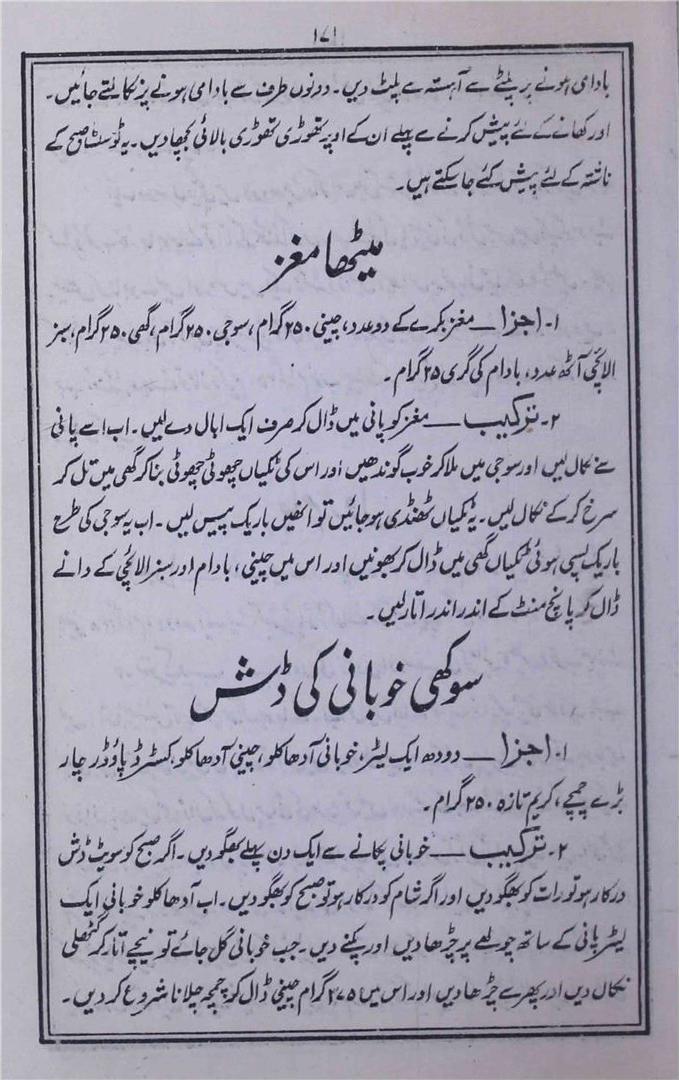 ۱۷۱
بادامی ہونے پر پلٹے سے آہستہ سے پلٹ دیں۔ دونوں طرف سے بادامی ہونے پر نکالتے جائیں۔
اور کھانے کے لئے پیش کرنے سے پہلے ان کے اوپر تھوڑی تھوڑی بالائی بچھا دیں۔ یہ ٹوسٹ صبح کے
ناشتہ کے لئے پیش کئے جا سکتے ہیں۔
میٹھا مغز
۱۔ اجزا — مغز بکرے کے دو عدد، چینی ۲۵۰ گرام، سوجی ۲۵۰ گرام، گھی ۲۵۰ گرام، سبز
الائچی آٹھ عدد، بادام کی گری ۲۵ گرام۔
۲۔ ترکیب — مغز کو پانی میں ڈال کر صرف ایک ابال دے لیں۔ اب اسے پانی
سے نکال لیں اور سوجی میں ملا کر خوب گوندھیں اور اس کی ٹکیاں چھوٹی چھوٹی بنا کر گھی میں تل کر
سرخ کر کے نکال لیں۔ یہ ٹکیاں ٹھنڈی ہو جائیں تو انھیں باریک پیس لیں۔ اب یہ سوجی کی طرح
باریک پسی ہوئی ٹکیاں گھی میں ڈال کر بھونیں اور اس میں چینی، بادام اور سبز الائچی کے دانے
ڈال کر پانچ منٹ کے اندر اندر اتار لیں۔
سوکھی خوبانی کی ڈش
۱۔ اجزا — دودھ ایک لیٹر، خوبانی آدھا کلو، چینی آدھا کلو، کسٹرڈ پاؤڈر چار
بڑے چمچے، کریم تازہ ۲۵۰ گرام۔
۲۔ ترکیب — خوبانی پکانے سے ایک دن پہلے بھگو دیں۔ اگر صبح کو سویٹ ڈش
درکار ہو تو رات کو بھگو دیں اور اگر شام کو درکار ہو تو صبح کو بھگو دیں۔ اب آدھا کلو خوبانی ایک
لیٹر پانی کے ساتھ چولھے پر چڑھا دیں اور پکنے دیں۔ جب خوبانی گل جائے تو نیچے اتار کر گٹھلی
نکال دیں اور پھر سے چڑھا دیں اور اس میں ۲۷۵ گرام چینی ڈال کر چمچہ چلانا شروع کر دیں۔